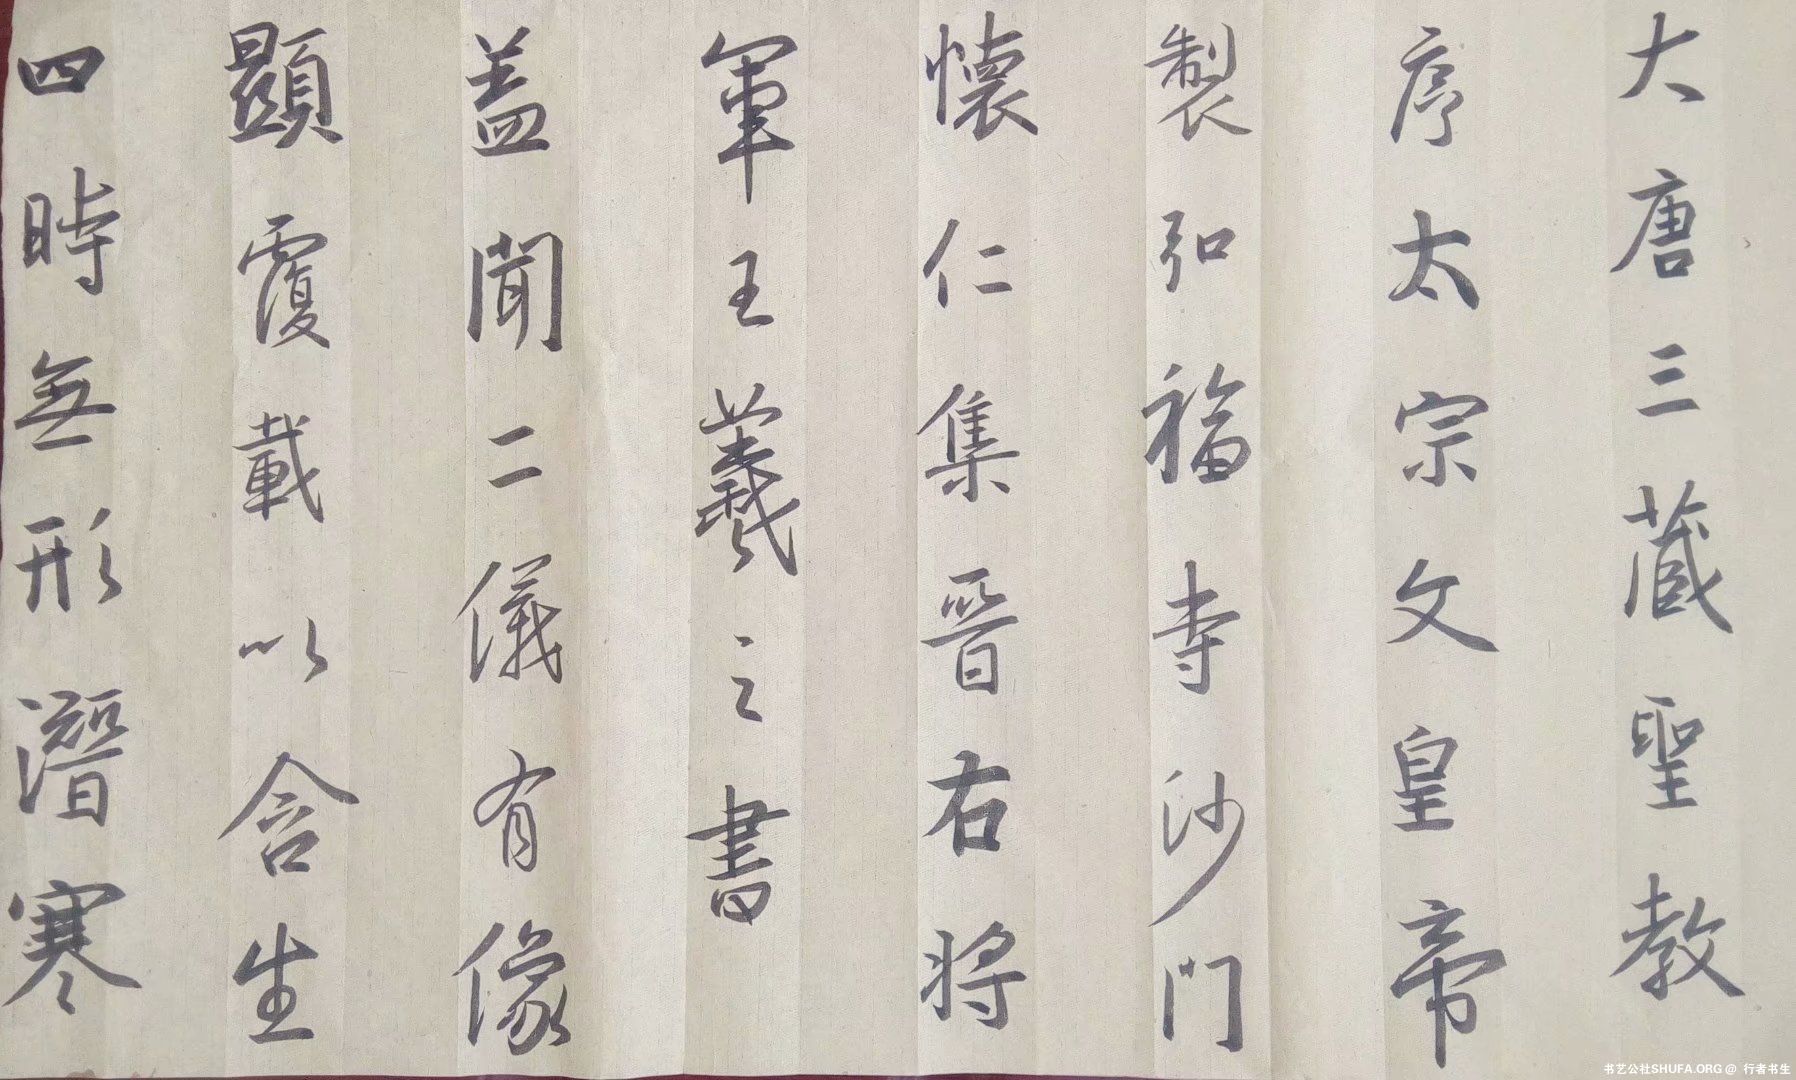 大唐三蔵聖教
序太宗文皇帝
製弘福寺沙門
懐仁集晋右将
軍王羲之書
盖聞二儀有像
顯覆載以含生
四時無形潛寒
书艺公社SHUFA.ORG @ 行者书生